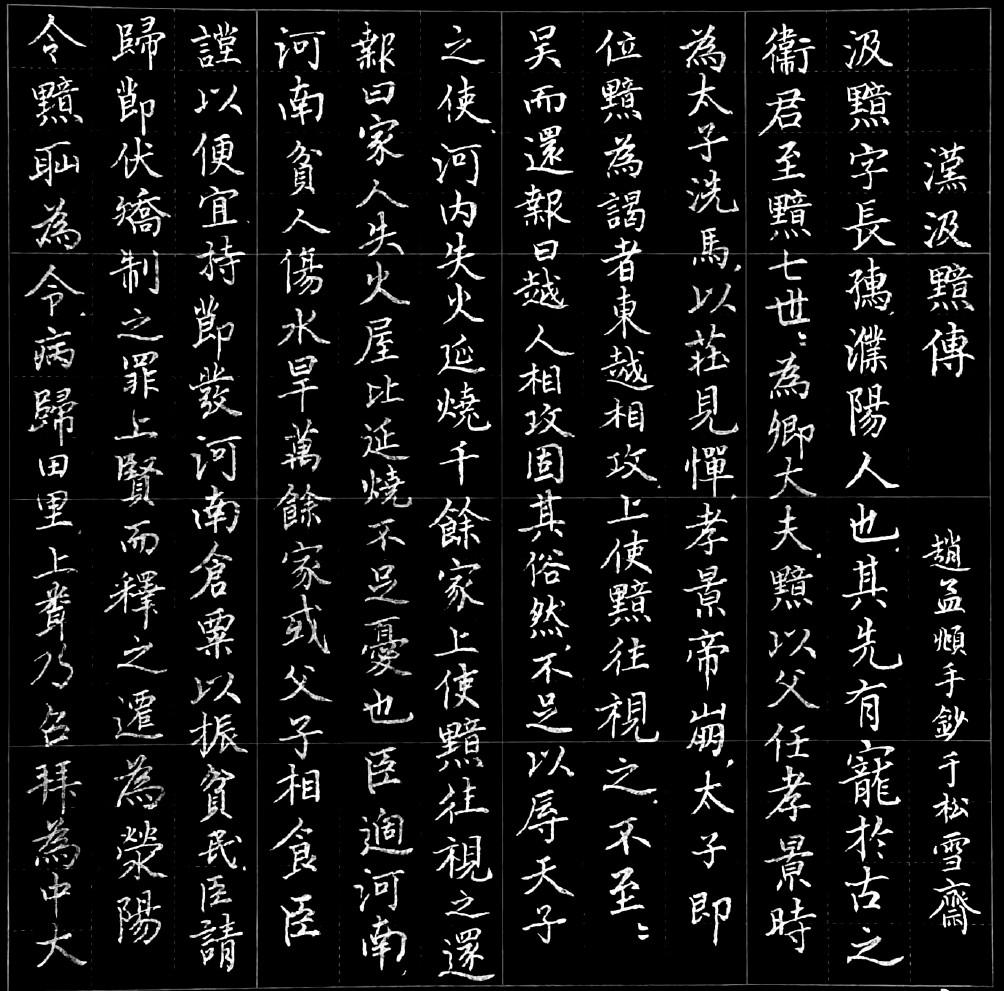 漢汲黯傳 趙孟頫手鈔于松雪齋
汲黯字長孺濮陽人也其先有寵於古之
衞君至黯七世〻為卿大夫黯以父任孝景時
為太子洗馬以莊見憚孝景帝崩太子即
位黯為謁者東越相攻上使黯往視之不至〻
吴而還報曰越人相攻固其俗然不足以辱天子
之使河内失火延燒千餘家上使黯往視之還
報曰家人失火屋比延燒不足憂也臣過河南
河南貧人傷水旱萬餘家或父子相食臣
謹以便宜持節發河南倉粟以振貧民臣請
歸節伏矯制之罪上賢而釋之遷為滎陽
令黯恥為令病歸田里上聞乃召拜為中大